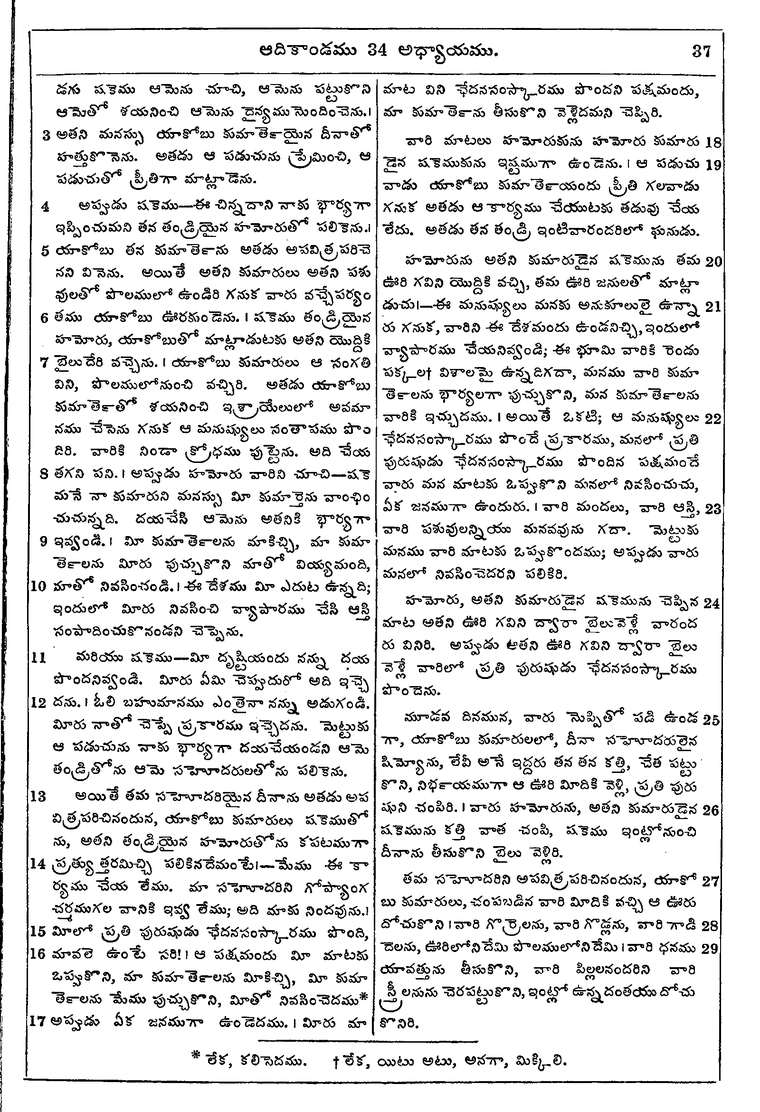 ఆదికాండము 34 అధ్యాయము.
37
డగు షకెము ఆమెను చూచి, ఆమెను పట్టుకొని
ఆమెతో శయనించి ఆమెను దైన్యము నొందించెను.।
3 అతని మనస్సు యాకోబు కుమార్తెయైన దీనాతో
హత్తుకొనెను. అతడు ఆ పడుచును ప్రేమించి, ఆ
పడుచుతో ప్రీతిగా మాట్లాడెను.
4 అప్పుడు షకెము—ఈ చిన్నదాని నాకు భార్యగా
ఇప్పించుమని తన తండ్రియైన హమోరుతో పలికెను.।
5 యాకోబు తన కుమార్తెను అతడు అపవిత్రపరిచె
నని వినెను. అయితే అతని కుమారులు అతని పశు
వులతో పొలములో ఉండిరి గనుక వారు వచ్చేపర్యం
6 తము యాకోబు ఊరకుండెను.। షకెము తండ్రియైన
హమోరు, యాకోబుతో మాట్లాడుటకు అతని యొద్దికి
7 బైలుదేరి వచ్చెను.। యాకోబు కుమారులు ఆ సంగతి
విని, పొలములోనుంచి వచ్చిరి. అతడు యాకోబు
కుమార్తెతో శయనించి ఇశ్రాయేలులో అవమా
నము చేసెను గనుక ఆ మనుష్యులు సంతాపము పొం
దిరి. వారికి నిండా క్రోధము పుట్టెను. అది చేయ
8 తగని పని.। అప్పుడు హమోరు వారిని చూచి—షకె
మనే నా కుమారుని మనస్సు మీ కుమార్తెను వాంఛిం
చుచున్నది. దయచేసి ఆమెను అతనికి భార్యగా
9 ఇవ్వండి.। మీ కుమార్తెలను మాకిచ్చి, మా కుమా
ర్తెలను మీరు పుచ్చుకొని మాతో వియ్యమంది,
10 మాతో నివసించండి.। ఈ దేశము మీ ఎదుట ఉన్నది;
ఇందులో మీరు నివసించి వ్యాపారము చేసి ఆస్తి
సంపాదించుకొనండని చెప్పెను.
11 మరియు షకెము—మీ దృష్టియందు నన్ను దయ
పొందనివ్వండి. మీరు ఏమి చెప్పుదురో అది ఇచ్చె
12 దను.। ఓలి బహుమానము ఎంతైనా నన్ను అడుగండి.
మీరు నాతో చెప్పే ప్రకారము ఇచ్చెదను. మెట్టుకు
ఆ పడుచును నాకు భార్యగా దయచేయండని ఆమె
తండ్రితోను ఆమె సహోదరులతోను పలికెను.
13 అయితే తమ సహోదరియైన దీనాను అతడు అప
విత్రపరిచినందున, యాకోబు కుమారులు షకెముతో
ను, అతని తండ్రియైన హమోరుతోను కపటముగా
14 ప్రత్యుత్తరమిచ్చి పలికినదేమంటే।—మేము ఈ కా
ర్యము చేయ లేము. మా సహోదరిని గోప్యాంగ
చర్మముగల వానికి ఇవ్వ లేము; అది మాకు నిందవును.।
15 మీలో ప్రతి పురుషుడు ఛేదనసంస్కారము పొంది,
16 మావలె ఉంటే సరి!। ఆ పక్షమందు మీ మాటకు
ఒప్పుకొని, మా కుమార్తెలను మీకిచ్చి, మీ కుమా
ర్తెలను మేము పుచ్చుకొని, మీతో నివసించెదము*
17 అప్పుడు ఏక జనముగా ఉండెదము.। మీరు మా
మాట విని ఛేదనసంస్కారము పొందని పక్షమందు,
మా కుమార్తెను తీసుకొని వెళ్లెదమని చెప్పిరి.
వారి మాటలు హమోరుకును హమోరు కుమారు 18
డైన షకెముకును ఇష్టముగా ఉండెను.। ఆ పడుచు 19
వాడు యాకోబు కుమార్తెయందు ప్రీతి గలవాడు
గనుక అతడు ఆ కార్యము చేయుటకు తడువు చేయ
లేదు. అతడు తన తండ్రి ఇంటివారందరిలో ఘనుడు.
హమోరును అతని కుమారుడైన షకెమును తమ 20
ఊరి గవిని యొద్దికి వచ్చి, తమ ఊరి జనులతో మాట్లా
డుచు।—ఈ మనుష్యులు మనకు అనుకూలులై ఉన్నా 21
రు గనుక, వారిని ఈ దేశమందు ఉండనిచ్చి, ఇందులో
వ్యాపారము చేయనివ్వండి; ఈ భూమి వారికి రెండు
పక్కల† విశాలమై ఉన్నదిగదా, మనము వారి కుమా
ర్తెలను భార్యలగా పుచ్చుకొని, మన కుమార్తెలను
వారికి ఇచ్చుదము.। అయితే ఒకటి; ఆ మనుష్యులు 22
ఛేదనసంస్కారము పొందే ప్రకారము, మనలో ప్రతి
పురుషుడు ఛేదనసంస్కారము పొందిన పక్షమందే
వారు మన మాటకు ఒప్పుకొని మనలో నివసించుచు,
ఏక జనముగా ఉందురు.। వారి మందలు, వారి ఆస్తి, 23
వారి పశువులన్నియు మనవవును గదా. మెట్టుకు
మనము వారి మాటకు ఒప్పుకొందము; అప్పుడు వారు
మనలో నివసించెదరని పలికిరి.
హమోరు, అతని కుమారుడైన షకెమును చెప్పిన 24
మాట అతని ఊరి గవిని ద్వారా బైలువెళ్లే వారంద
రు వినిరి. అప్పుడు అతని ఊరి గవిని ద్వారా బైలు
వెళ్లే వారిలో ప్రతి పురుషుడు ఛేదనసంస్కారము
పొందెను.
మూడవ దినమున, వారు నొప్పితో పడి ఉండ 25
గా, యాకోబు కుమారులలో, దీనా సహోదరులైన
షిమ్యోను, లేవీ అనే ఇద్దరు తన తన కత్తి, చేత పట్టు
కొని, నిర్భయముగా ఆ ఊరి మీదికి వెళ్లి, ప్రతి పురు
షుని చంపిరి.। వారు హమోరును, అతని కుమారుడైన 26
షకెమును కత్తి వాత చంపి, షకెము ఇంట్లోనుంచి
దీనాను తీసుకొని బైలు వెళ్లిరి.
తమ సహోదరిని అపవిత్రపరిచినందున, యాకో 27
బు కుమారులు, చంపబడిన వారి మీదికి వచ్చి ఆ ఊరు
దోచుకొని। వారి గొర్రెలను, వారి గొడ్లను, వారి గాడి 28
దెలను, ఊరిలోనిదేమి పొలములోనిదేమి। వారి ధనము 29
యావత్తును తీసుకొని, వారి పిల్లలనందరిని వారి
స్త్రీలనును చెరపట్టుకొని, ఇంట్లో ఉన్నదంతయు దోచు
కొనిరి.
* లేక, కలిసెదము. † లేక, యిటు అటు, అనగా, మిక్కిలి.